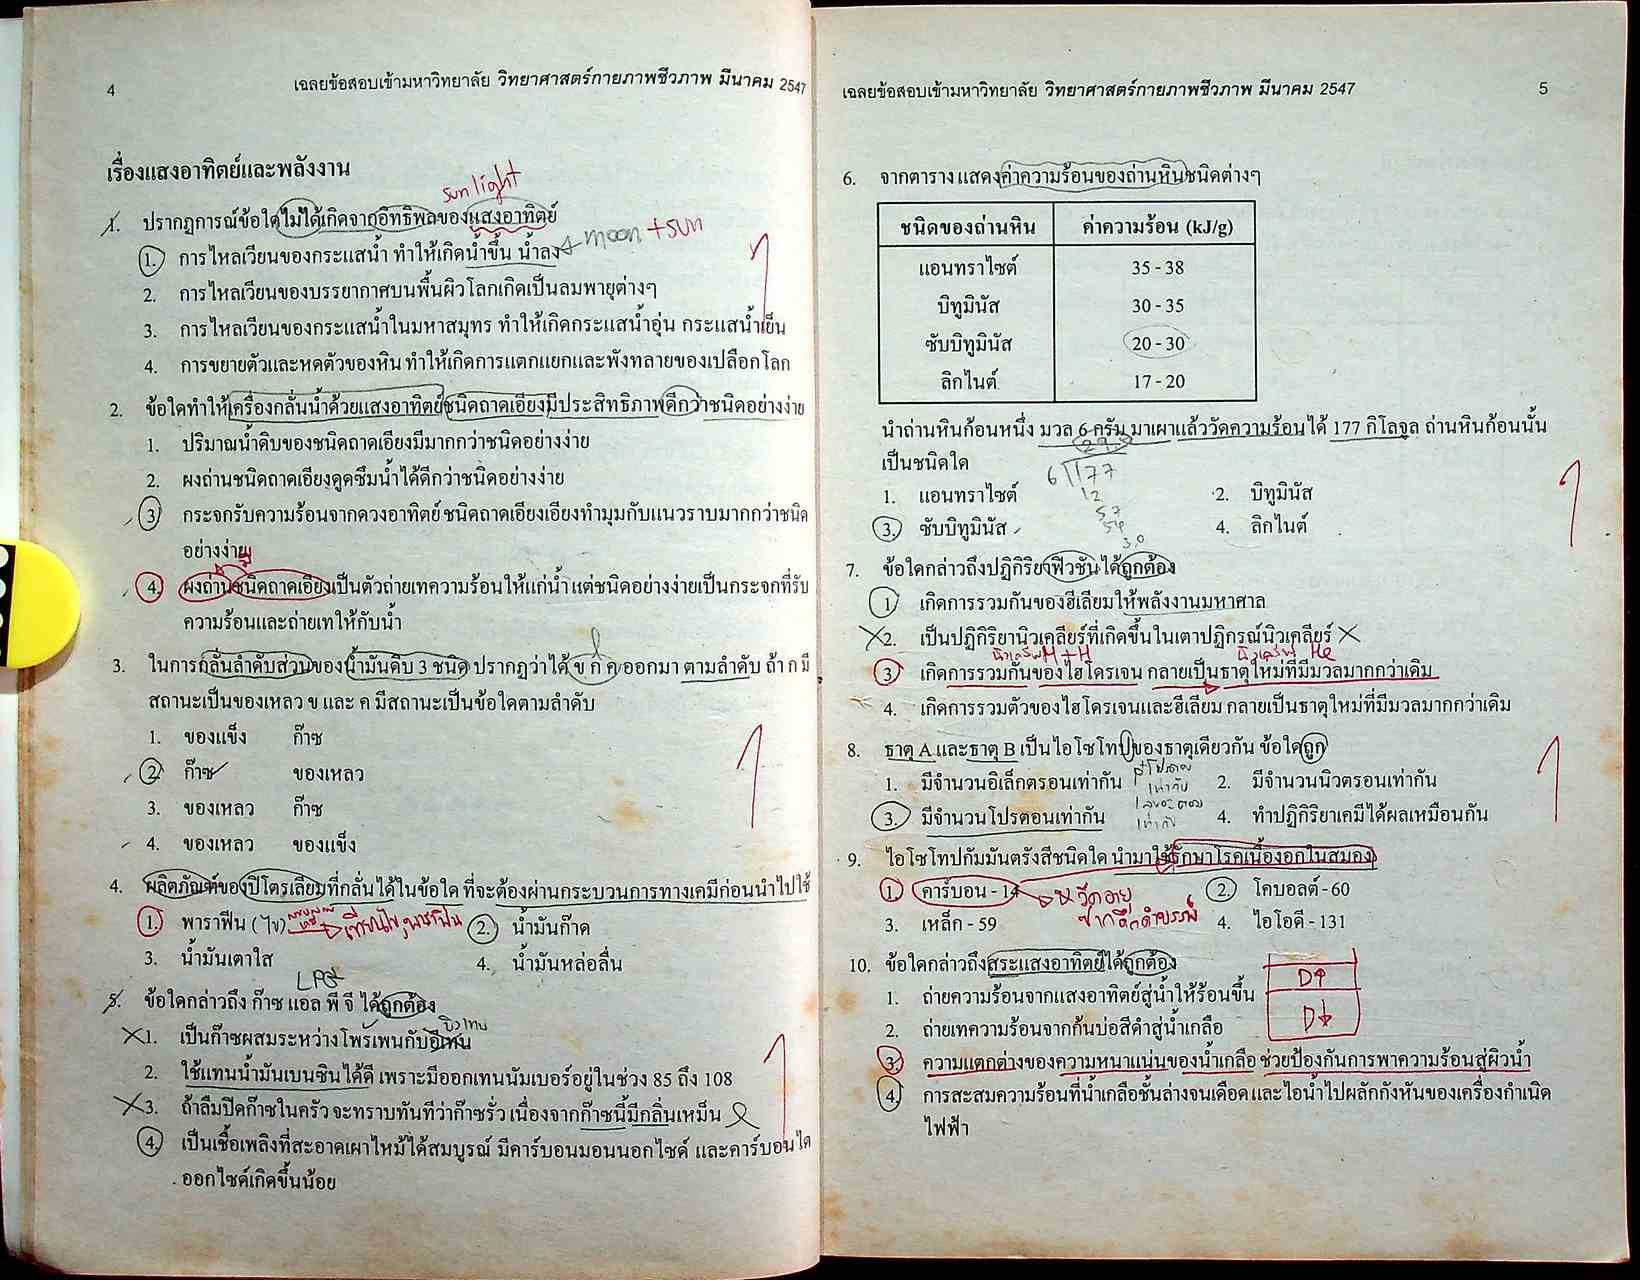 4
เฉลยข้อสอบเข้ามหาวิทยาลัย วิทยาศาสตร์กายภาพชีวภาพ มีนาคม 2547
เรื่องแสงอาทิตย์และพลังงาน
sun light
1. ปรากฏการณ์ข้อใดไม่ได้เกิดจากอิทธิพลของแสงอาทิตย์
moon + sun
1. การไหลเวียนของกระแสน้ำ ทำให้เกิดน้ำขึ้น น้ำลง
2. การไหลเวียนของบรรยากาศบนพื้นผิวโลกเกิดเป็นลมพายุต่างๆ
3. การไหลเวียนของกระแสน้ำในมหาสมุทร ทำให้เกิดกระแสน้ำอุ่น กระแสน้ำเย็น
4. การขยายตัวและหดตัวของหิน ทำให้เกิดการแตกแยกและพังทลายของเปลือกโลก
2. ข้อใดทำให้เครื่องกลั่นน้ำด้วยแสงอาทิตย์ชนิดถาดเอียงมีประสิทธิภาพดีกว่าชนิดอย่างง่าย
1. ปริมาณน้ำดิบของชนิดถาดเอียงมีมากกว่าชนิดอย่างง่าย
2. ผงถ่านชนิดถาดเอียงดูดซึมน้ำได้ดีกว่าชนิดอย่างง่าย
3. กระจกรับความร้อนจากดวงอาทิตย์ ชนิดถาดเอียงเอียงทำมุมกับแนวราบมากกว่าชนิด
อย่างง่าย
4. ผงถ่านชนิดถาดเอียงเป็นตัวถ่ายเทความร้อนให้แก่น้ำ แต่ชนิดอย่างง่ายเป็นกระจกที่รับ
ความร้อนและถ่ายเทให้กับน้ำ
3. ในการกลั่นลำดับส่วนของน้ำมันดิบ 3 ชนิด ปรากฏว่าได้ ข ก ค ออกมา ตามลำดับ ถ้า ก มี
สถานะเป็นของเหลว ข และ ค มีสถานะเป็นข้อใดตามลำดับ
1. ของแข็ง ก๊าซ
2. ก๊าซ ของเหลว
3. ของเหลว ก๊าซ
4. ของเหลว ของแข็ง
4. ผลิตภัณฑ์ของปิโตรเลียมที่กลั่นได้ในข้อใด ที่จะต้องผ่านกระบวนการทางเคมีก่อนนำไปใช้
1. พาราฟีน (ไข) เทียนไข, พาราฟิน 2. น้ำมันก๊าด
3. น้ำมันเตาใส 4. น้ำมันหล่อลื่น
LPG
5. ข้อใดกล่าวถึง ก๊าซ แอล พี จี ได้ถูกต้อง
บิวเทน
1. เป็นก๊าซผสมระหว่างโพรเพนกับอีเทน
2. ใช้แทนน้ำมันเบนซินได้ดี เพราะมีออกเทนนัมเบอร์อยู่ในช่วง 85 ถึง 108
3. ถ้าลืมปิดก๊าซในครัว จะทราบทันทีว่าก๊าซรั่ว เนื่องจากก๊าซนี้มีกลิ่นเหม็น
4. เป็นเชื้อเพลิงที่สะอาดเผาไหม้ได้สมบูรณ์ มีคาร์บอนมอนนอกไซด์ และคาร์บอนได
ออกไซด์เกิดขึ้นน้อย
เฉลยข้อสอบเข้ามหาวิทยาลัย วิทยาศาสตร์กายภาพชีวภาพ มีนาคม 2547
5
6. จากตาราง แสดงค่าความร้อนของถ่านหินชนิดต่างๆ
ชนิดของถ่านหิน ค่าความร้อน (kJ/g)
แอนทราไซต์ 35 - 38
บิทูมินัส 30 - 35
ซับบิทูมินัส 20 - 30
ลิกไนต์ 17 - 20
นำถ่านหินก้อนหนึ่ง มวล 6 กรัม มาเผาแล้ววัดความร้อนได้ 177 กิโลจูล ถ่านหินก้อนนั้น
เป็นชนิดใด
6 177
12
57
54
30
1. แอนทราไซต์ 2. บิทูมินัส
3. ซับบิทูมินัส 4. ลิกไนต์
7. ข้อใดกล่าวถึงปฏิกิริยาฟิวชันได้ถูกต้อง
1. เกิดการรวมกันของฮีเลียมให้พลังงานมหาศาล
2. เป็นปฏิกิริยานิวเคลียร์ที่เกิดขึ้นในเตาปฏิกรณ์นิวเคลียร์
H+H He
3. เกิดการรวมกันของไฮโดรเจน กลายเป็นธาตุใหม่ที่มีมวลมากกว่าเดิม
4. เกิดการรวมตัวของไฮโดรเจนและฮีเลียม กลายเป็นธาตุใหม่ที่มีมวลมากกว่าเดิม
8. ธาตุ A และธาตุ B เป็นไอโซโทปของธาตุเดียวกัน ข้อใดถูก
1. มีจำนวนอิเล็กตรอนเท่ากัน 2. มีจำนวนนิวตรอนเท่ากัน
3. มีจำนวนโปรตอนเท่ากัน 4. ทำปฏิกิริยาเคมีได้ผลเหมือนกัน
9. ไอโซโทปกัมมันตรังสีชนิดใด นำมาใช้รักษาโรคเนื้องอกในสมอง
1. คาร์บอน - 14 2. โคบอลต์ - 60
วัดอายุ
ซากดึกดำบรรพ์
3. เหล็ก - 59 4. ไอโอดี - 131
10. ข้อใดกล่าวถึงสระแสงอาทิตย์ได้ถูกต้อง
D↑
D↓
1. ถ่ายความร้อนจากแสงอาทิตย์สู่น้ำให้ร้อนขึ้น
2. ถ่ายเทความร้อนจากก้นบ่อสีดำสู่น้ำเกลือ
3. ความแตกต่างของความหนาแน่นของน้ำเกลือ ช่วยป้องกันการพาความร้อนสู่ผิวน้ำ
4. การสะสมความร้อนที่น้ำเกลือชั้นล่างจนเดือด และไอน้ำไปผลักกังหันของเครื่องกำเนิด
ไฟฟ้า